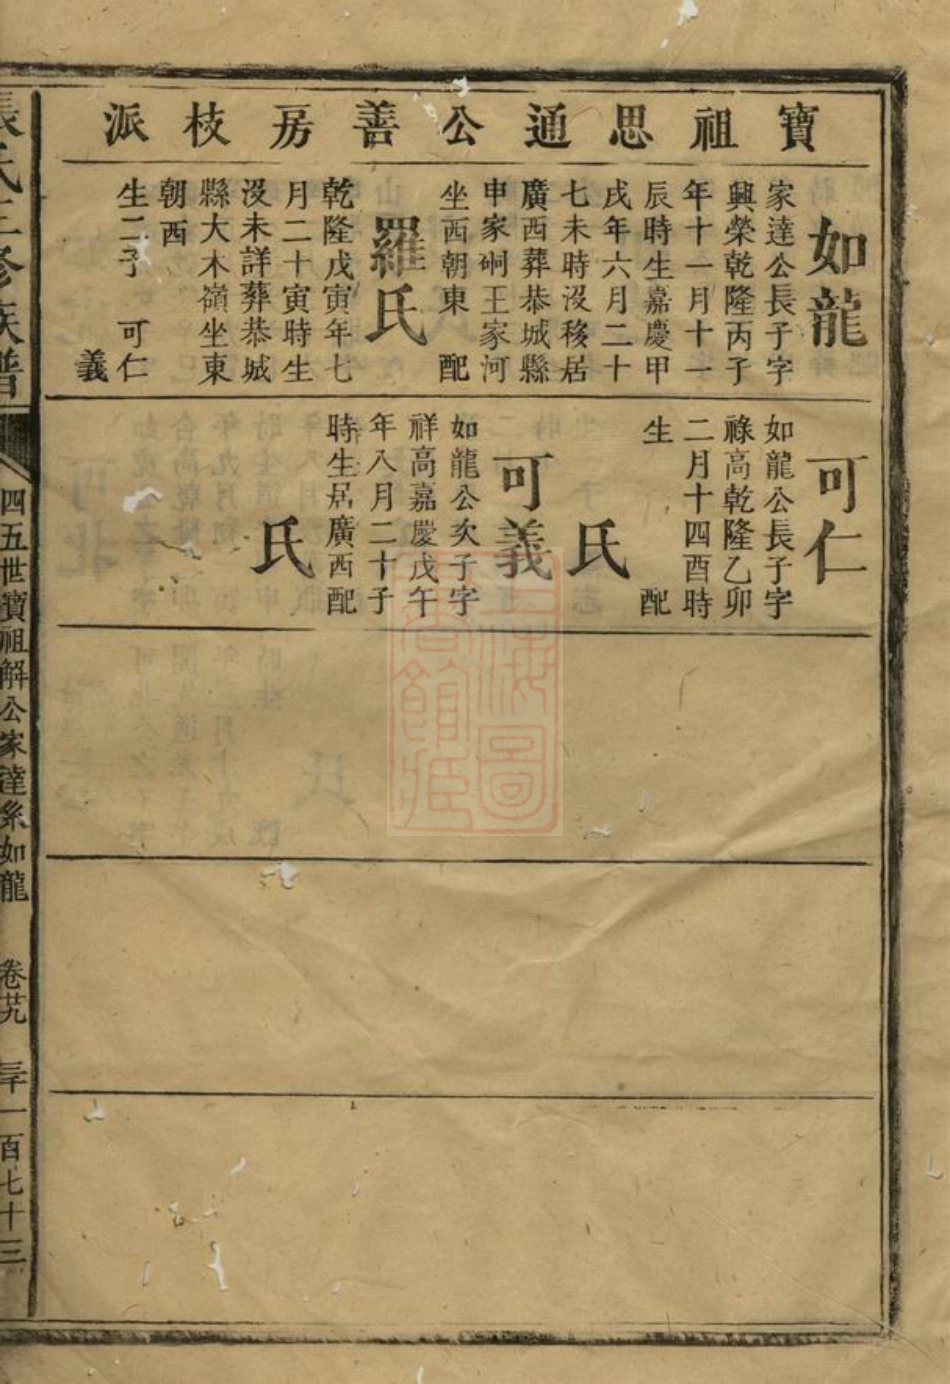 寶祖思通公善房枝派
如龍
家達公長子字
興榮乾隆丙子
年十一月十一
辰時生嘉慶甲
戌年六月二十
七未時沒移居
廣西葬恭城縣
申家硐王家河
坐西朝東 配
羅氏
乾隆戊寅年七
月二十寅時生
沒未詳葬恭城
縣大木嶺坐東
朝西
生二子 可仁
義
可仁
如龍公長子字
祿高乾隆乙卯
二月十四酉時
生 配
氏
可義
如龍公次子字
祥高嘉慶戊午
年八月二十子
時生居廣西配
氏
張氏三修族譜
四五世寶祖解公家達系如龍
卷廿九
三千一百七十三
上海圖書館藏